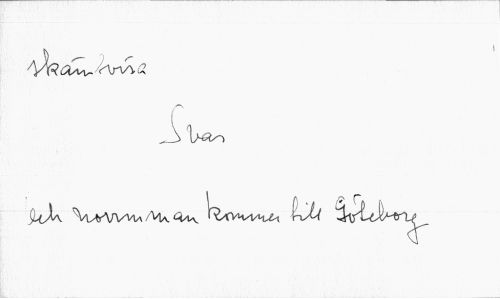 skämtvisa
Svar
En norrman kommer till Göteborg